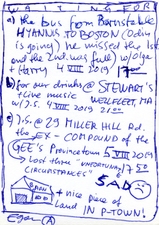 WAITING FOR
a) the bus from Barnstable
HYANNIS TO BOSTON (Odin
is going) he missed the 1st
and the 2nd was full) w/Olga
+ Harry 4 VIII 2019 17
b) for our drinks @ STEWART'S
+ live music WELLFLEET, MA
w/J.S. 4 VIII 2019 21
c) J.S. @ 29 MILLER HILL Rd.
the EX-COMPOUND of the
GEE'S Provincetown 5 VIII 2019
Lost thru "UNFORTUNATE 17 50
CIRCUMSTANCES"
SAD
BARN + nice piece of
LAND IN P-TOWN!
A